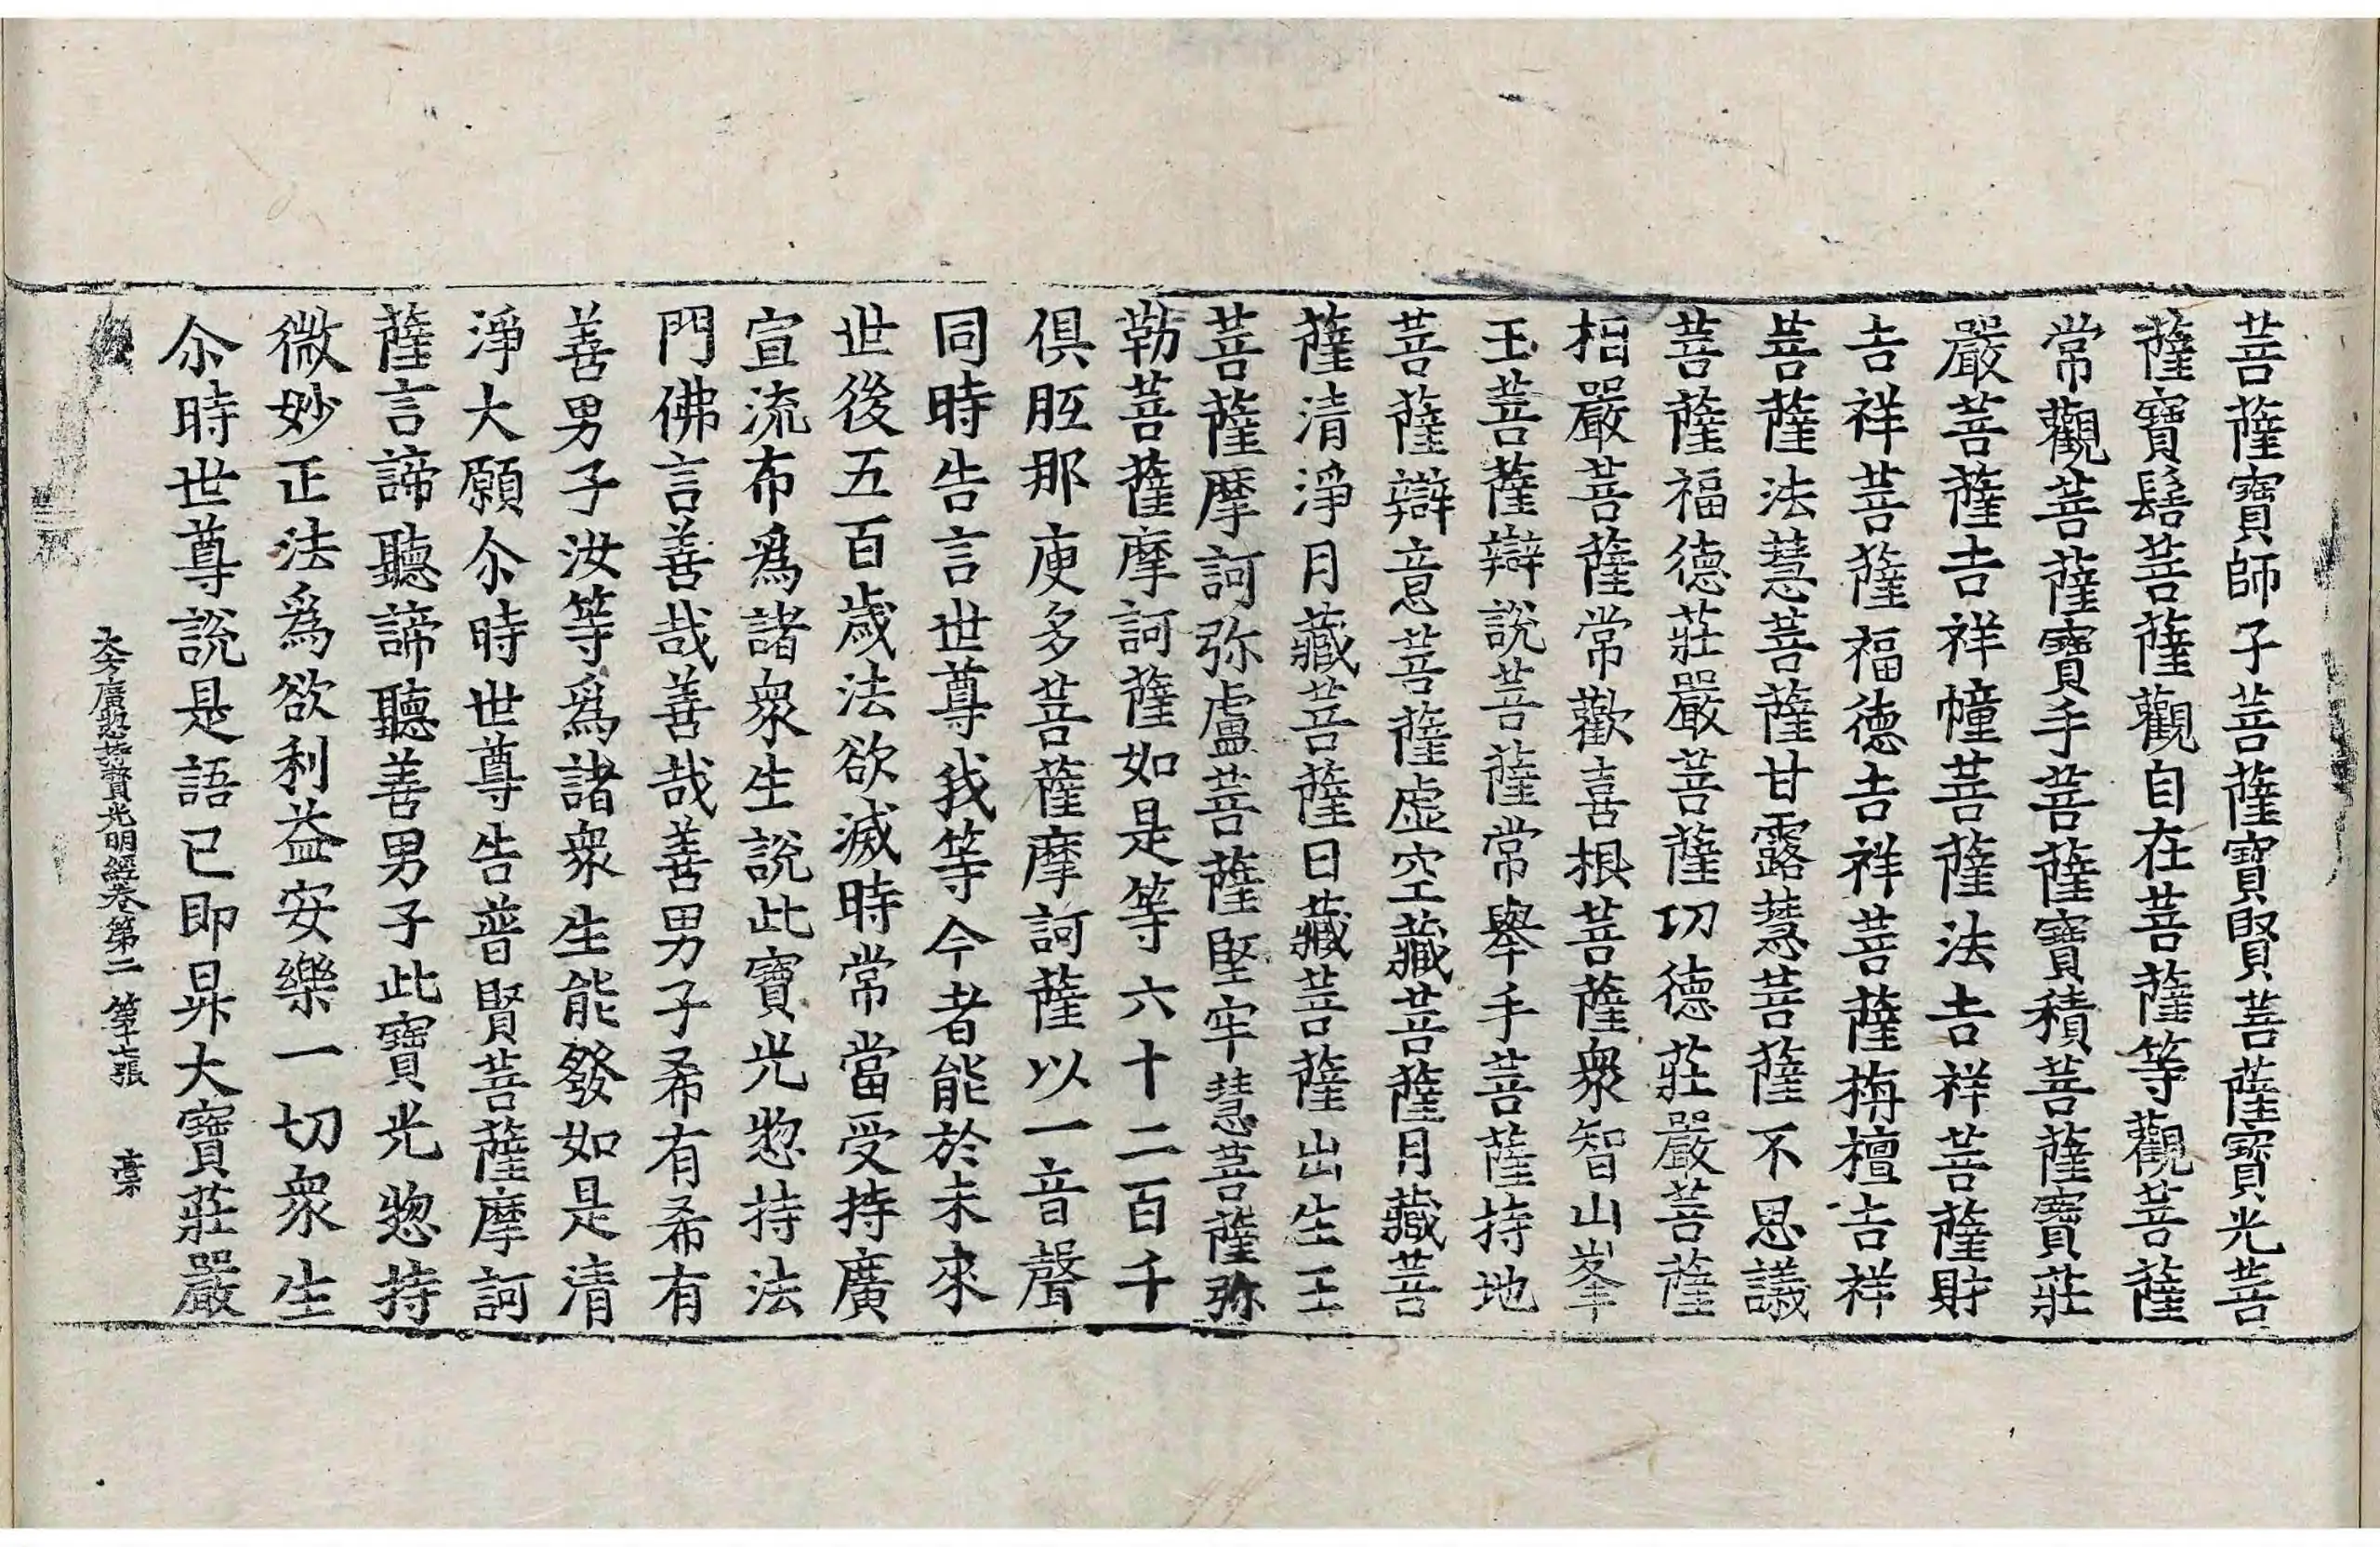 菩薩寶師子菩薩寶賢菩薩寶光菩
薩寶髻菩薩觀自在菩薩等觀菩薩
常觀菩薩寶手菩薩寶積菩薩寶莊
嚴菩薩吉祥幢菩薩法吉祥菩薩財
吉祥菩薩福德吉祥菩薩栴檀吉祥
菩薩法慧菩薩甘露慧菩薩不思議
菩薩福德莊嚴菩薩功德莊嚴菩薩
相嚴菩薩常歡喜根菩薩衆智山峯
王菩薩辯說菩薩常舉手菩薩持地
菩薩辯意菩薩虛空藏菩薩月藏菩
薩清淨月藏菩薩日藏菩薩出生王
菩薩摩訶弥盧菩薩堅牢慧菩薩弥
勒菩薩摩訶薩如是等六十二百千
俱胝那庾多菩薩摩訶薩以一音聲
同時告言世尊我等今者能於未來
世後五百歲法欲滅時常當受持廣
宣流布爲諸衆生說此寶光惣持法
門佛言善哉善哉善男子希有希有
善男子汝等爲諸衆生能發如是清
淨大願尒時世尊告普賢菩薩摩訶
薩言諦聽諦聽善男子此寶光惣持
微妙正法爲欲利益安樂一切衆生
尒時世尊說是語已即昇大寶莊嚴
大方廣惣持寶光明經卷第二 第十七張